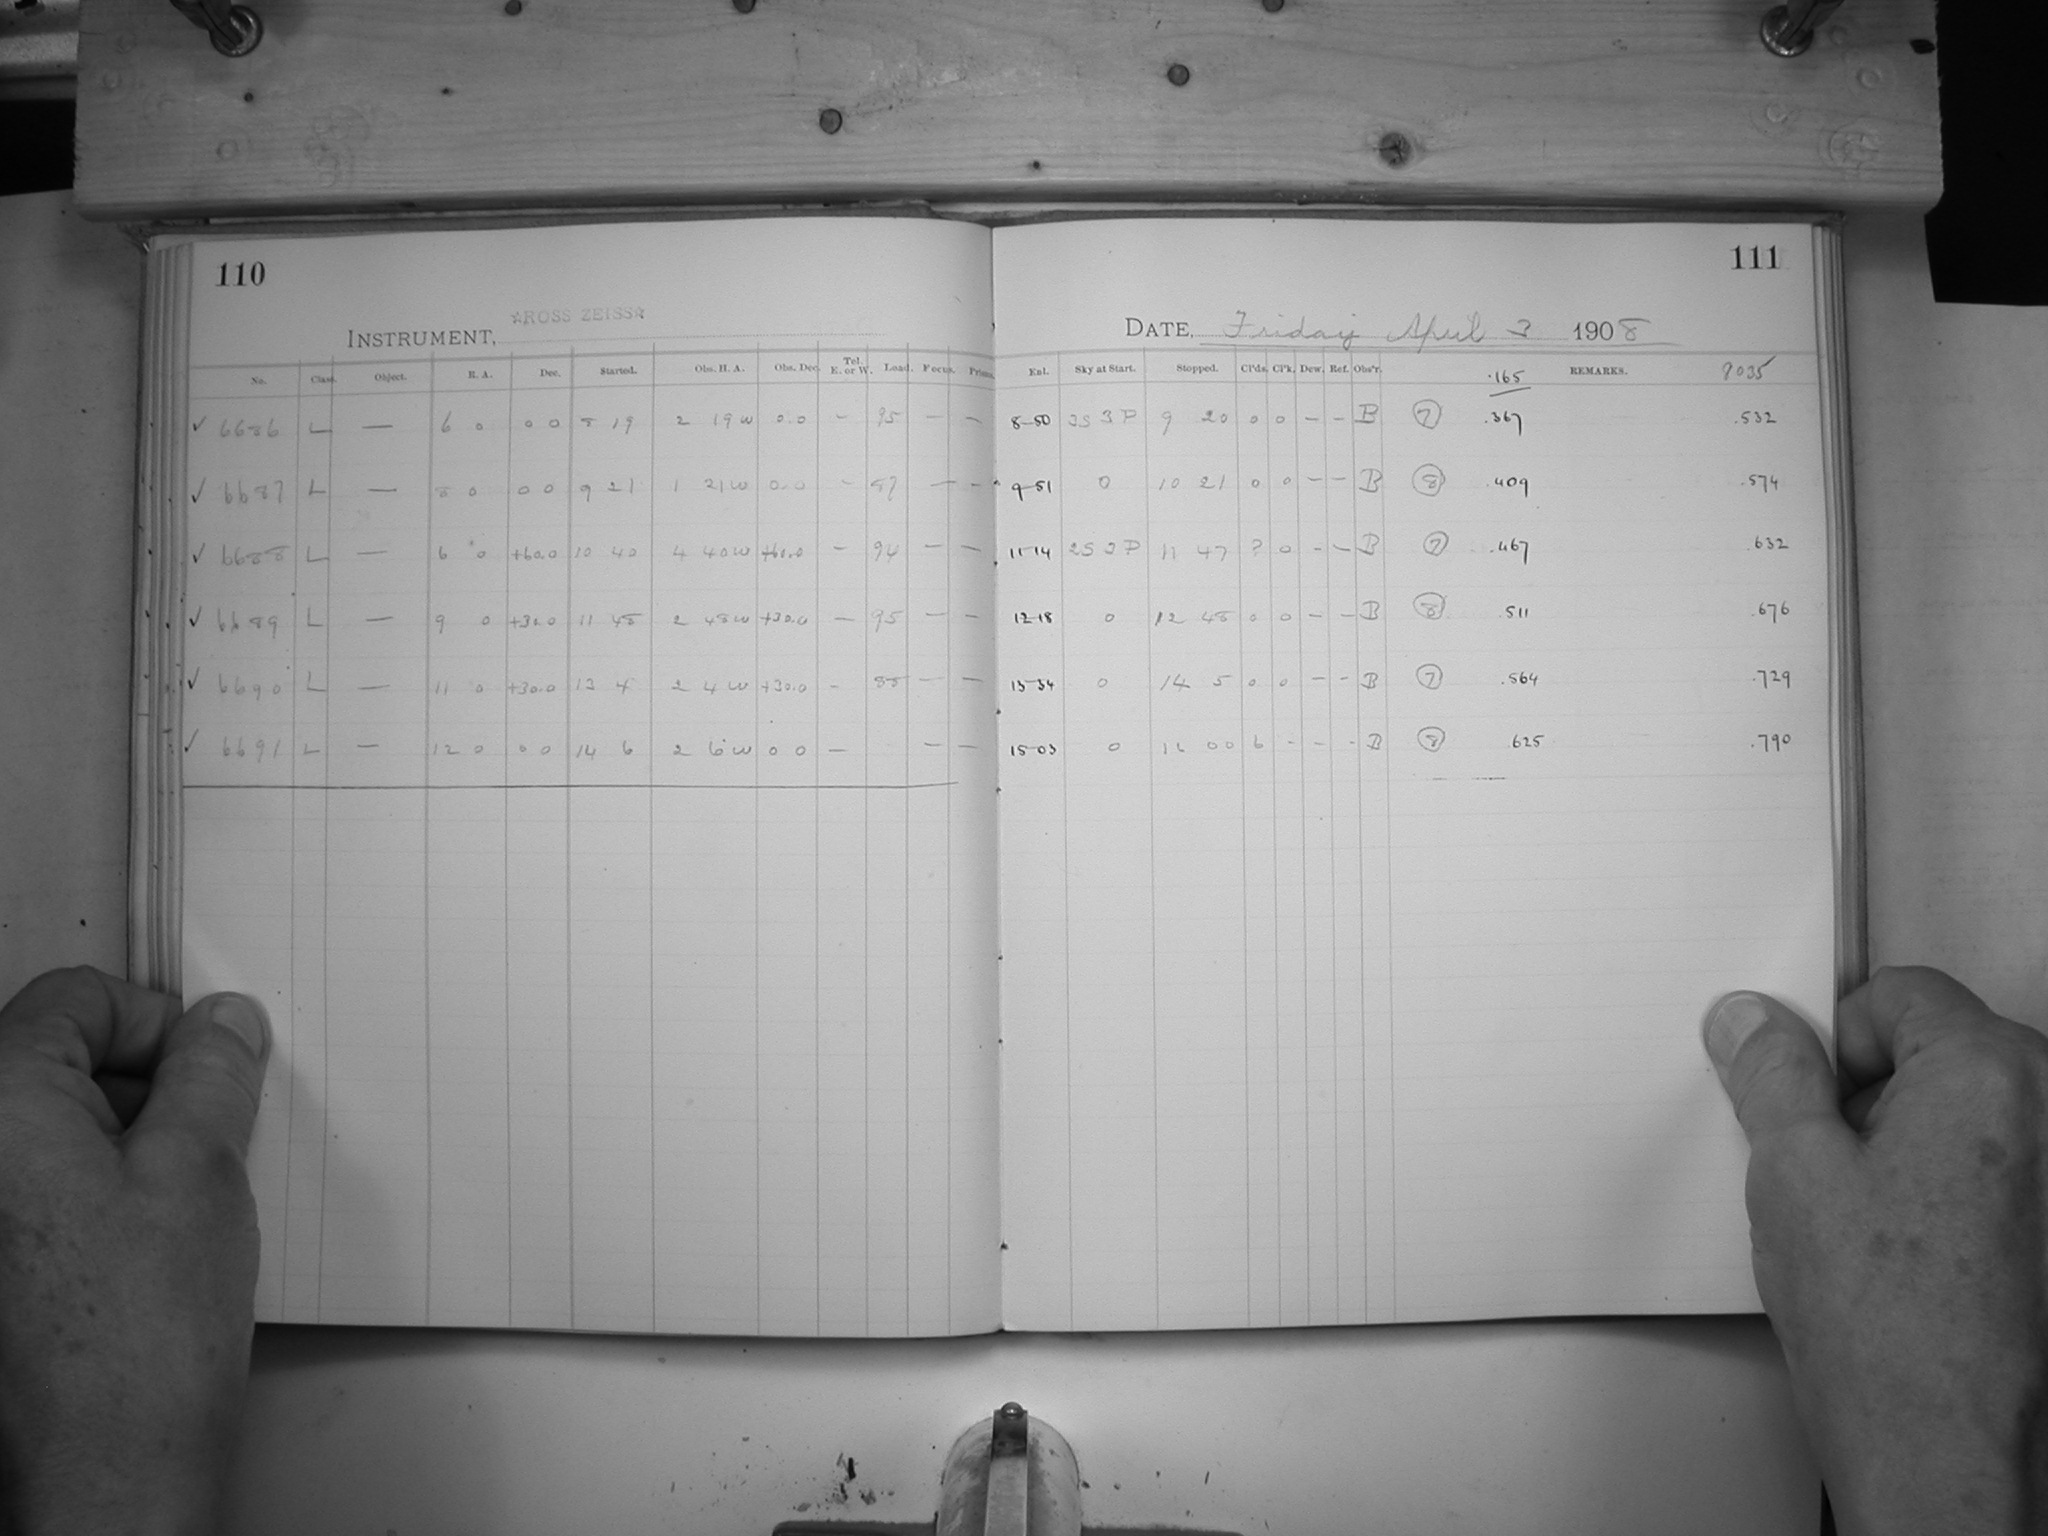 110
INSTRUMENT, ☆ROSS ZEISS☆
No. Class. Object. R. A. Dec. Started. Obs. H. A. Obs. Dec. Tel. E. or W. Load. Focus. Prisms.
✓ 6686 L — 6 0 0 0 8 19 2 19 W 0.0 – 95 – –
✓ 6687 L — 8 0 0 0 9 21 1 21 W 0.0 – 87 – –
✓ 6688 L — 6 0 +60.0 10 40 4 40 W +60.0 – 94 – –
✓ 6689 L — 9 0 +30.0 11 48 2 48 W +30.0 – 95 – –
✓ 6690 L — 11 0 +30.0 13 4 2 4 W +30.0 – 88 – –
✓ 6691 L — 12 0 0 0 14 6 2 6 W 0 0 – – –
111
DATE, Friday April 3 1908
Enl. Sky at Start. Stopped. Cl'ds. Cl'k. Dew. Ref. Obs'r. .165 REMARKS. 8035
8-50 3S 3P 9 20 0 0 – – B ⑦ .367 .532
9-51 0 10 21 0 0 – – B ⑧ .409 .574
11-14 2S 2P 11 47 ? 0 – – B ⑦ .467 .632
12-18 0 12 48 0 0 – – B ⑧ .511 .676
13-34 0 14 5 0 0 – – B ⑦ .564 .729
15-03 0 16 00 6 – – – B ⑧ .625 .790